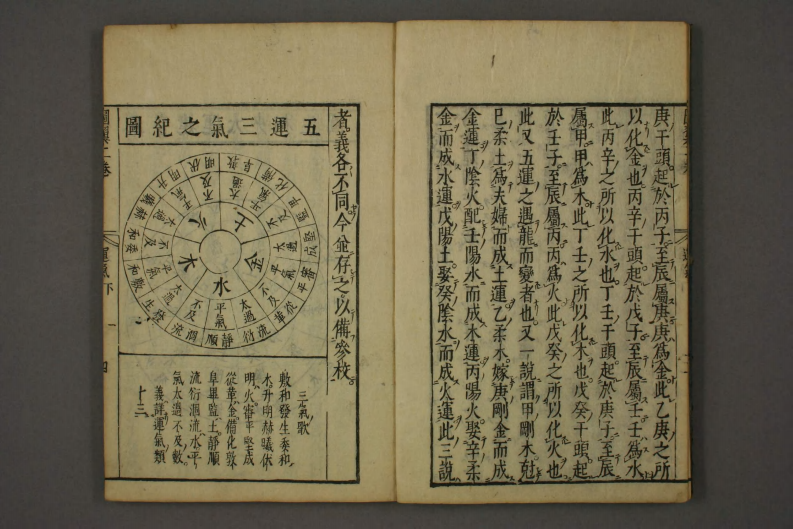 庚干頭起於丙子至辰屬庚庚爲金此乙庚之所
以化金也丙辛干頭起於戊子至辰屬壬壬爲水
此丙辛之所以化水也丁壬干頭起於庚子至辰
屬甲甲爲木此丁壬之所以化木也戊癸干頭起
於壬子至辰屬丙丙爲火此戊癸之所以化火也
此又五運之遇龍而變者也又一說謂甲剛木尅
巳柔土爲夫婦而成土運乙柔木嫁庚剛金而成
金運丁陰火配壬陽水而成木運丙陽火娶辛柔
金而成水運戊陽土娶癸陰水而成火運此三說
者義各不同今並存之以備參校
五運三氣之紀圖
土
太過
平氣
不及
敦阜
備化
卑監
金
太過
平氣
不及
堅成
審平
從革
水
太過
不及
平氣
流衍
靜順
涸流
木
太過
平氣
不及
發生
敷和
委和
火
太過
平氣
不及
赫曦
升明
伏明
三氣歌
敷和發生委和
木升明赫曦伏
明火審平堅成
從革金備化敦
阜卑監土靜順
流衍涸流水平
氣太過不及數
義詳運氣類
十三
運氣下
四